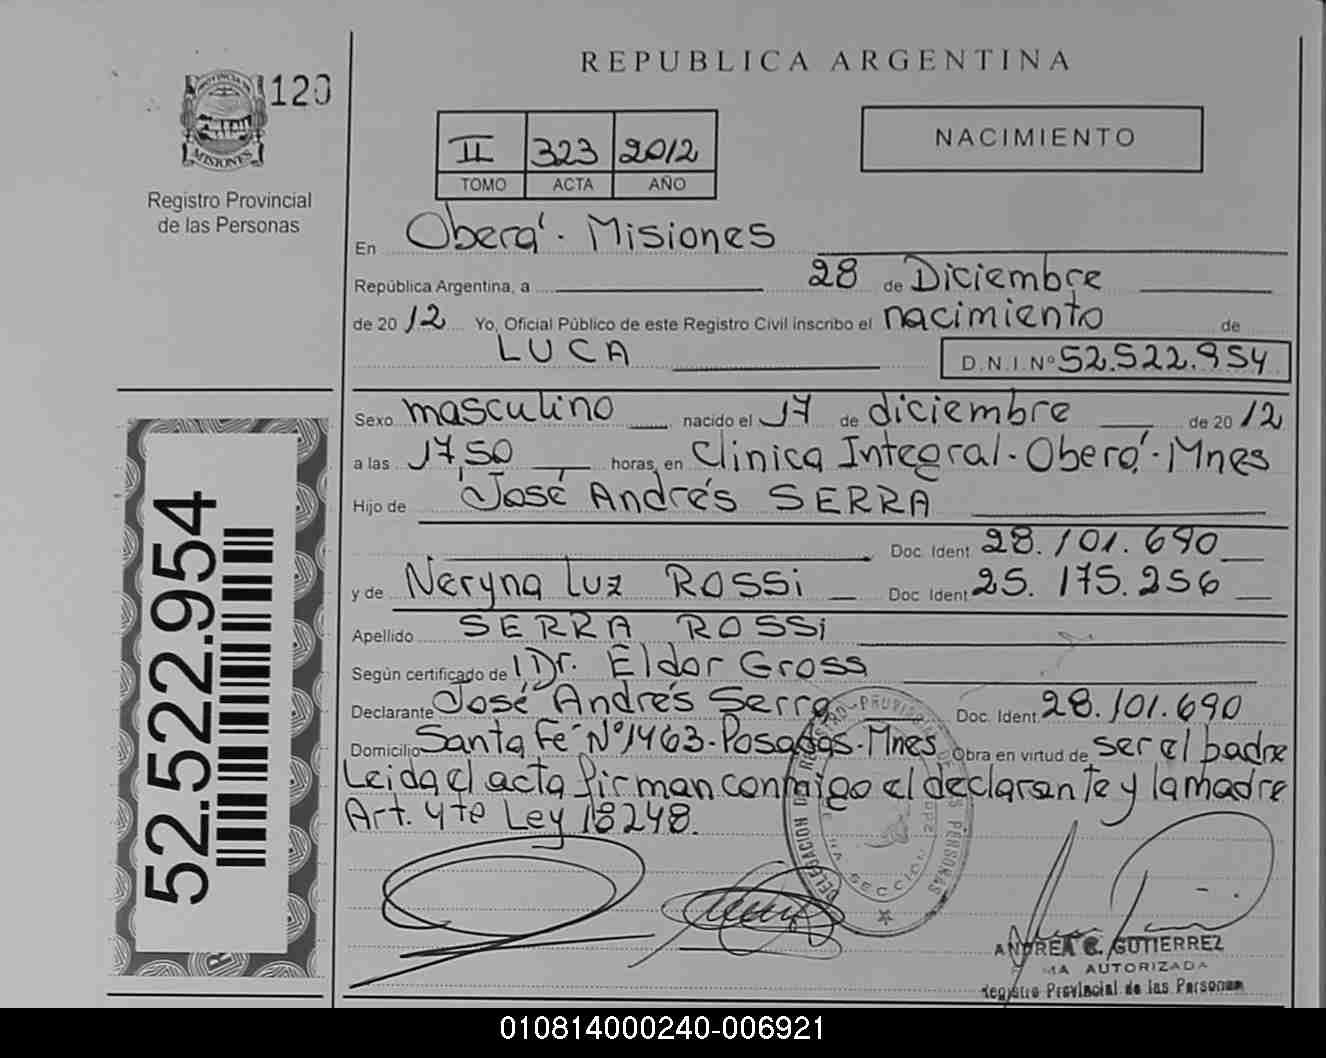 REPUBLICA ARGENTINA
PROVINCIA
MISIONES
120
Registro Provincial
de las Personas
II 323 2012
TOMO ACTA AÑO
NACIMIENTO
En Oberá - Misiones
República Argentina, a 28 de Diciembre
de 20 12 Yo, Oficial Público de este Registro Civil inscribo el nacimiento de
LUCA D.N.I. Nº 52.522.954
Sexo masculino nacido el 17 de diciembre de 20 12
a las 17,50 horas, en Clinica Integral - Oberá - Mnes
Hijo de José Andrés SERRA
Doc. Ident 28.101.690
y de Neryna Luz ROSSi Doc. Ident 25.175.256
Apellido SERRA ROSSi
Según certificado de Dr. Eldor Gross
Declarante José Andrés Serra Doc. Ident. 28.101.690
Domicilio Santa Fé Nº 1463 - Posadas - Mnes Obra en virtud de ser el padre
Leida el acta firman conmigo el declarante y la madre
Art. 4te Ley 18248.
52.522.954
DELEGACION PERSONAS
SECCION
ANDREA C. GUTIERREZ
AUTORIZADA
Registro Provincial de las Personas
010814000240-006921